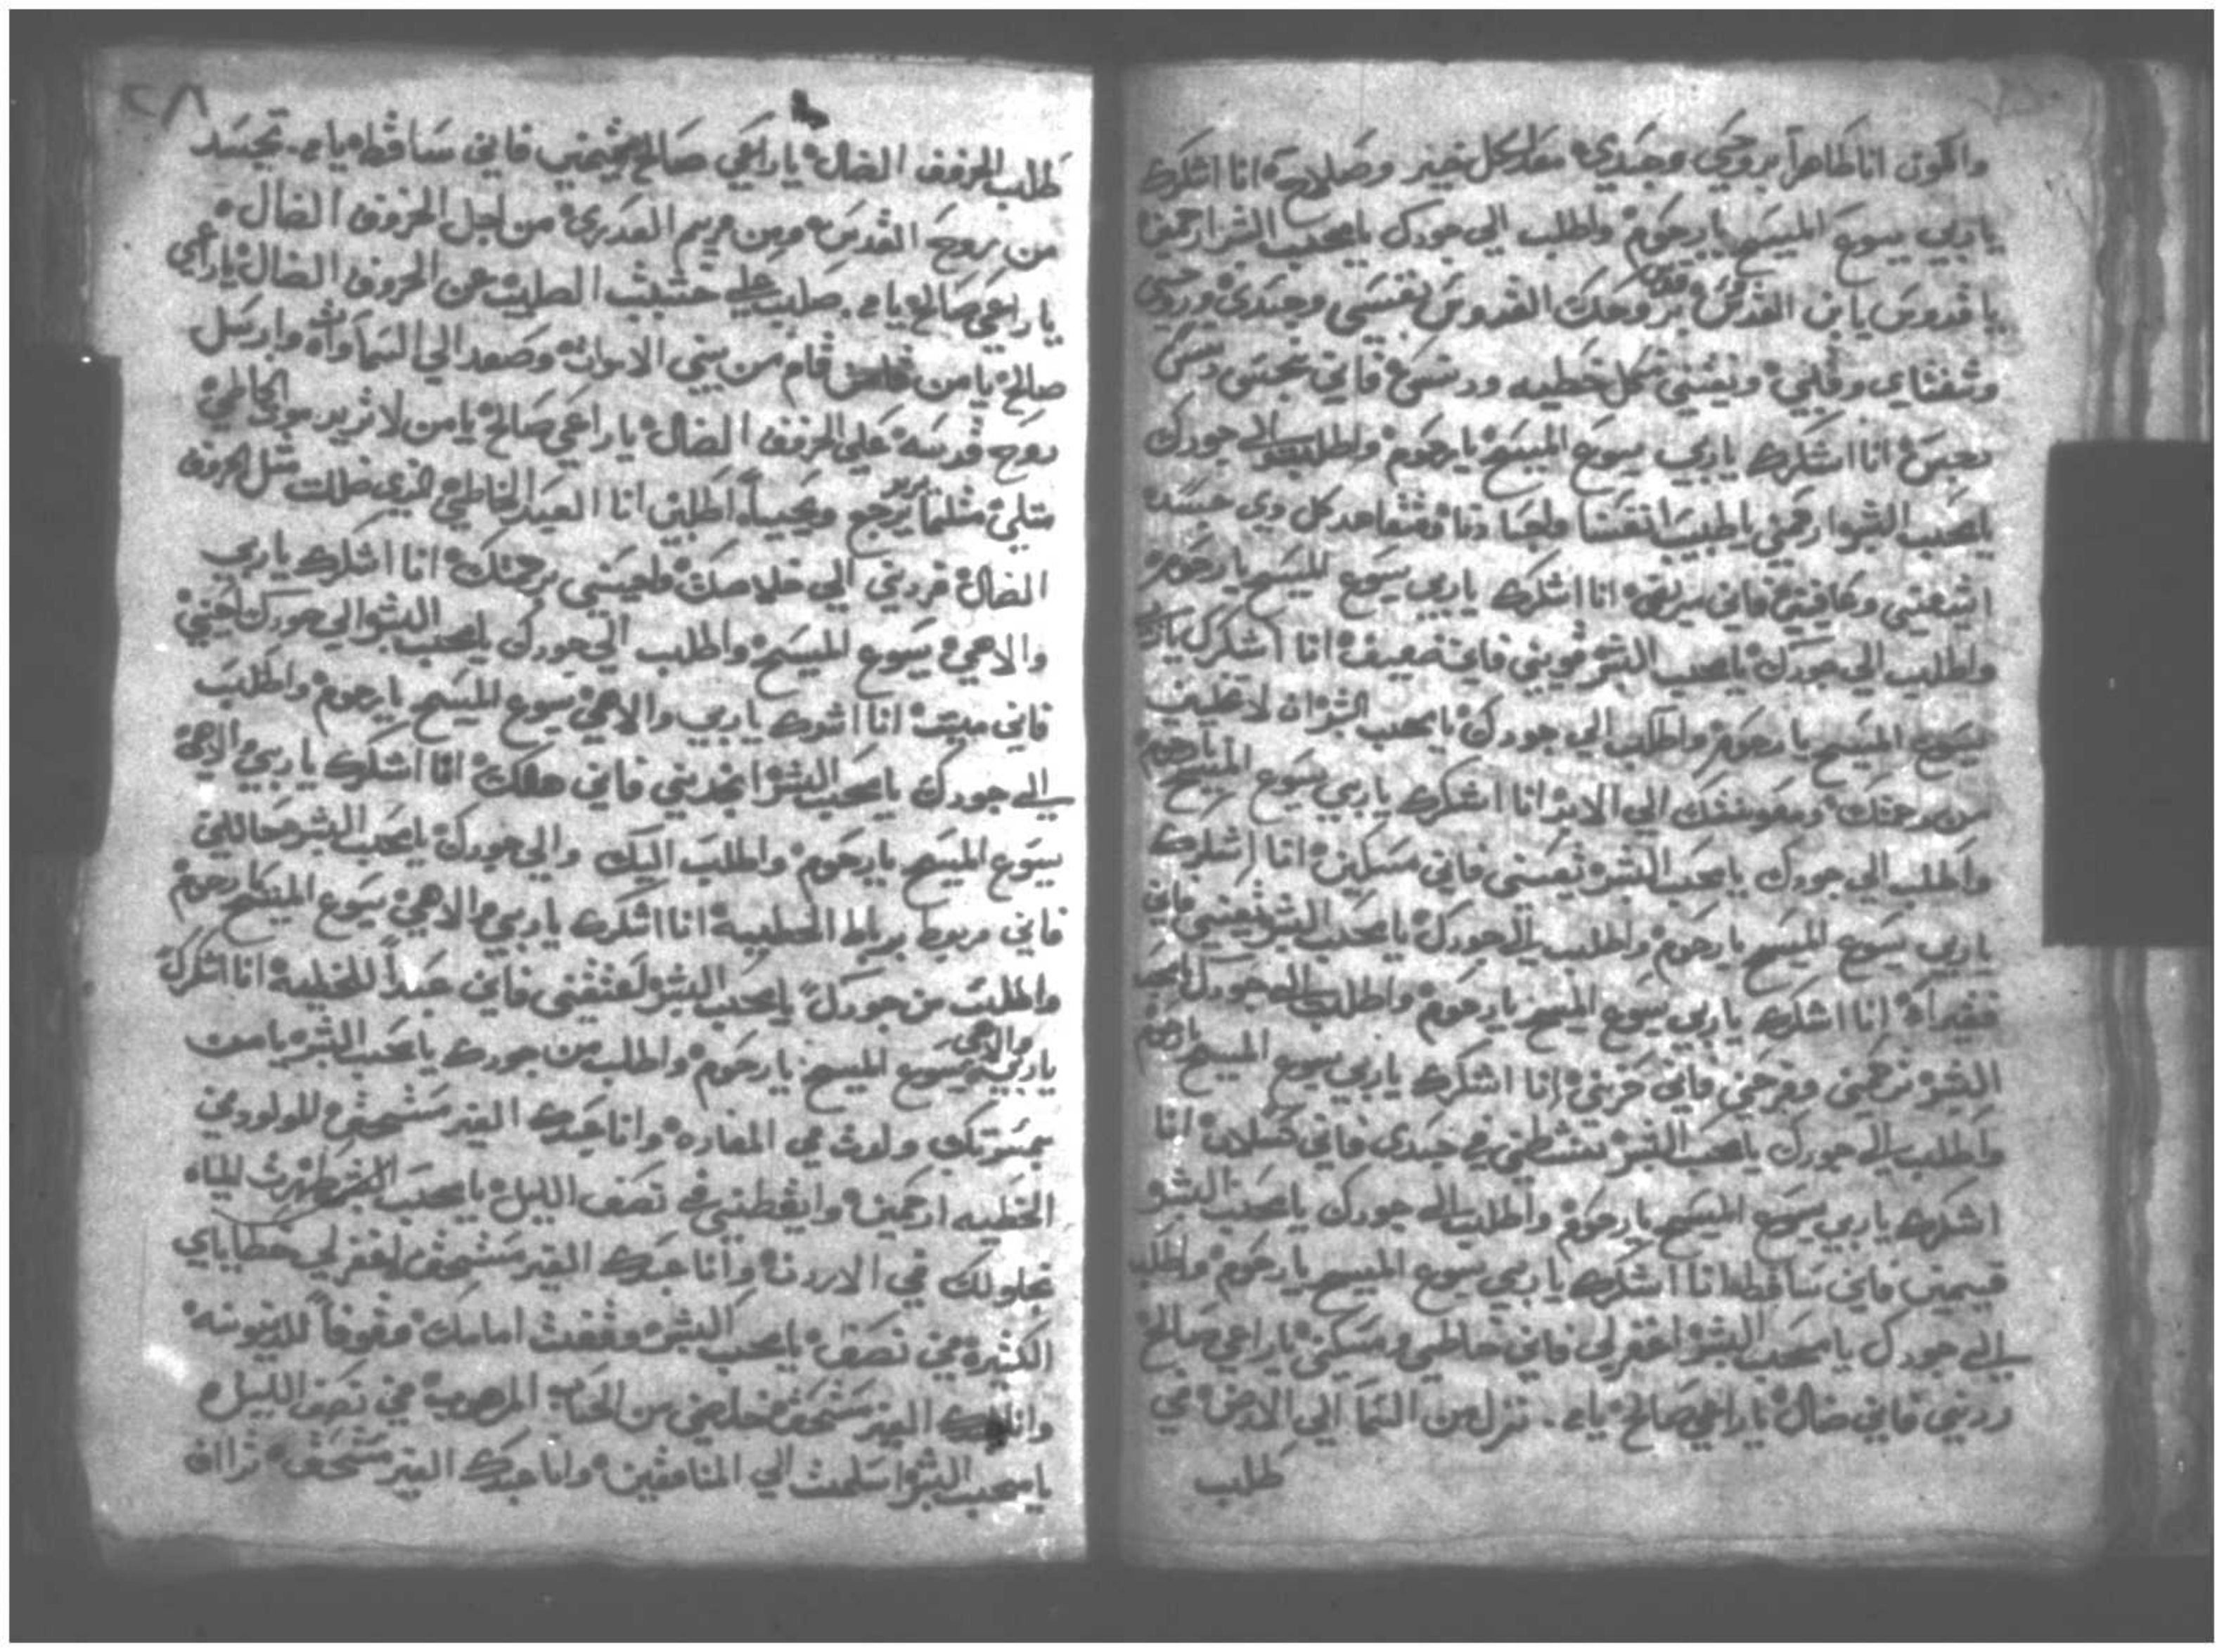 واكون انا طاهراً بروحي وجسدي معداً لكل خير وصلاح انا اشكرك
ياربي يسوع المسيح يارحوم واطلب الي جودك يامحب البشر ارحمني
يا قدوس يابن القدوس بروحك القدوس نفسي وجسدي وروحي
وشفتاي وقلبي من كل خطيه ودنس فاني نجس دنس
نجس انا اشكرك ياربي يسوع المسيح يارحوم واطلب الي جودك
يامحب البشر ارحمني ياطبيب انفسنا واجسادنا ومتعاهد كل ذي جسد
اشفيني وعافيني فاني مريض انا اشكرك ياربي يسوع المسيح يارحوم
واطلب الي جودك يامحب البشر قويني فاني ضعيف انا اشكرك ياربي
يسوع المسيح يارحوم واطلب الي جودك يامحب البشر ان لا تخليني
من رحمتك ومعونتك الي الابد انا اشكرك ياربي يسوع المسيح يارحوم
واطلب الي جودك يامحب البشر تعينني فاني مسكين انا اشكرك
ياربي يسوع المسيح يارحوم واطلب الي جودك يامحب البشر تغنيني فاني
فقيراً انا اشكرك ياربي يسوع المسيح يارحوم واطلب الي جودك يامحب
البشر ترحمني وفرحني فاني حزين انا اشكرك ياربي يسوع المسيح يارحوم
واطلب الي جودك يامحب البشر تنشطني في جسدي فاني كسلان انا
اشكرك ياربي يسوع المسيح يارحوم واطلب الي جودك يامحب البشر
قيمني فاني ساقط انا اشكرك ياربي يسوع المسيح يارحوم واطلب
الي جودك يامحب البشر اغفر لي فاني خاطي ومسكين ياراعي صالح
ردني فاني ضال ياراعي صالح يامن نزل من السما الي الارض في
طلب
٢٨
طلب الخروف الضال ياراعي صالح قيمني فاني ساقط يامن تجسد
من روح القدس ومن مريم العدري من اجل الخروف الضال
ياراعي صالح يامن صلب علي خشبت الصليب عن الخروف الضال ياراعي
صالح يا من قام من بين الاموات وصعد الي السماوات وارسل
روح قدسه علي الخروف الضال ياراعي صالح يامن لا تريد موت الخاطي
مثلي مثلما يرجع ويحيا اطلبني انا العبد الخاطي الذي ضللت مثل الخروف
الضال فردني الي خلاصك واعينني برحمتك انا اشكرك ياربي
والاهي يسوع المسيح واطلب الي جودك يامحب البشر الي جودك احيني
فاني ميت انا اشكرك ياربي والاهي يسوع المسيح يارحوم واطلب
الي جودك يامحب البشر انجدني فاني هالك انا اشكرك ياربي والاهي
يسوع المسيح يارحوم واطلب اليك والي جودك يامحب البشر حاللني
فاني مربوط برباط الخطيية انا اشكرك ياربي والاهي يسوع المسيح يارحوم
واطلب من جودك يامحب البشر لتعتقني فاني عبداً للخطيه انا اشكرك
ياربي والاهي يسوع المسيح يارحوم واطلب من جودك يامحب البشر يامن
بمسرتك ولدت في المغاره وانا عبدك الغير مستحق المولود في
الخطيه ارحمني وايقظني في نصف الليل يامحب البشر طهرت المياه
بحلولك في الاردن وانا عبدك الغير مستحق اغفر لي خطاياي
الكثيرة في نصف يامحب البشر وقفت امامك وقوفاً للدينونه
وانا عبدك الغير مستحق خلصني من الحساب المرهوب في نصف الليل
يامحب البشر اسلمت الي المنافقين وانا عبدك الغير مستحق تراأف